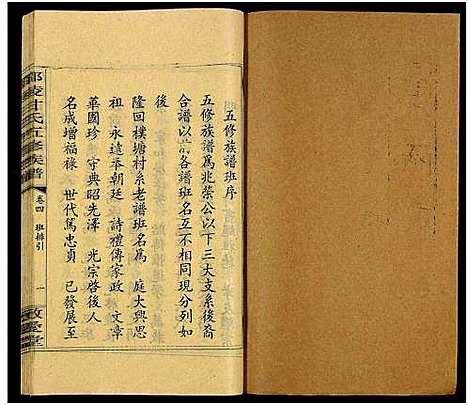 五修族譜班序
五修族譜爲兆榮公以下三大支系後裔
合譜以前各譜班名互不相同現分列如
後
隆回樸塘村系老譜班名爲　庭大興思
祖　永遠奉朝廷　詩禮傳家政　文章
華國珍　守典昭先澤　光宗啓後人
名成增福祿　世代篤忠貞　已發展至
氏五修族譜
卷四
班排引
一
敦室堂